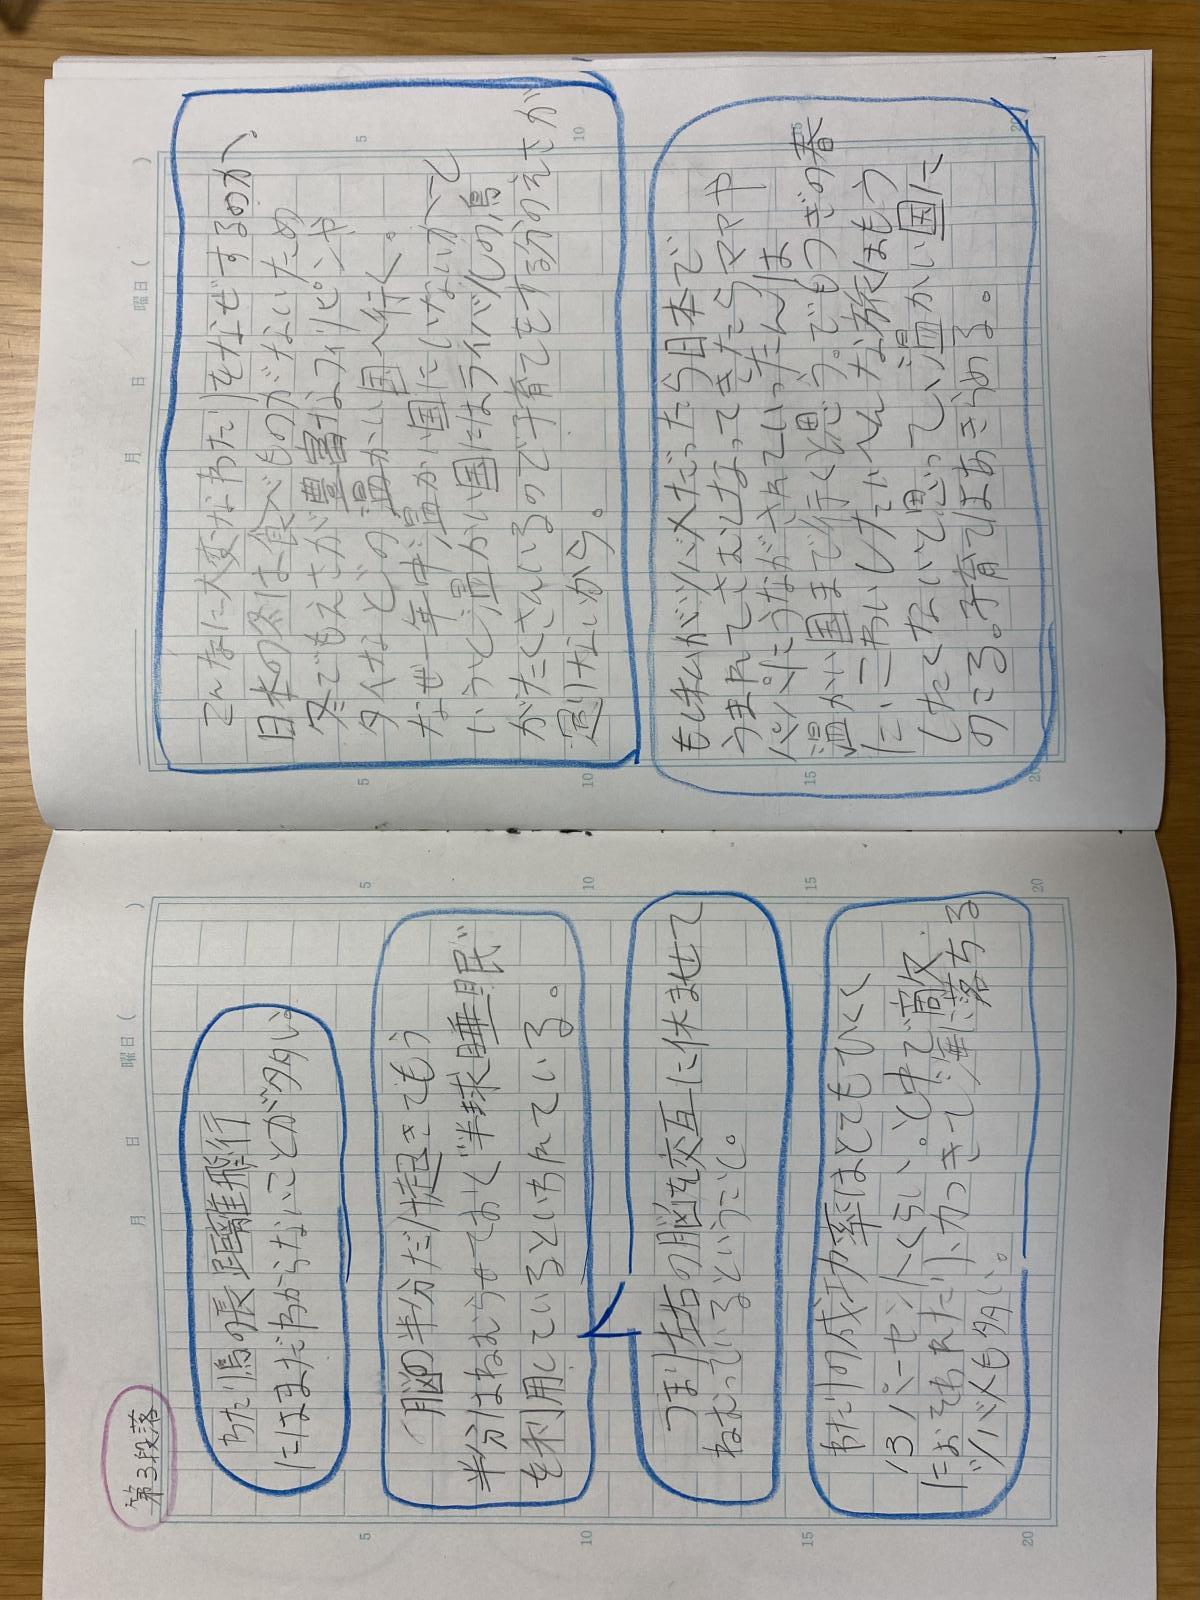 第3段落
わたり鳥の長距離飛行
にはまだわからないことが多い。
脳の半分だけ起きてもう
半分はねむらせておく"半球睡眠"
を利用しているといわれている。
つまり左右の脳を交互に休ませて
ねむっているということ。
わたりの成功率はとてもひくく
13パーセントくらい。と中で敵
におそわれたり、力つきて海に落ちる
ツバメも多い。
月 日 曜日( )
5
10
15
20
こんなに大変なわたりをなぜするのか、
日本の冬は食べものがないため
冬でもえさが豊富なフィリピンや
タイなどの温かい国へ行く。
なぜ一年中温かい国にいないかと
いうと温かい国にはライバルの鳥
がたくさんいるので子育てをする分のえさが
足りないから。
もし私がツバメだったら日本で
うまれてさむくなってきたらママや
パパにうながされていったんは
温かい国まで行くと思う。でもつぎの春
に、こわいしたいへんな旅はもう
したくないと思って、温かい国に
のこる。子育てはあきらめる。
月 日 曜日( )
5
10
15
20